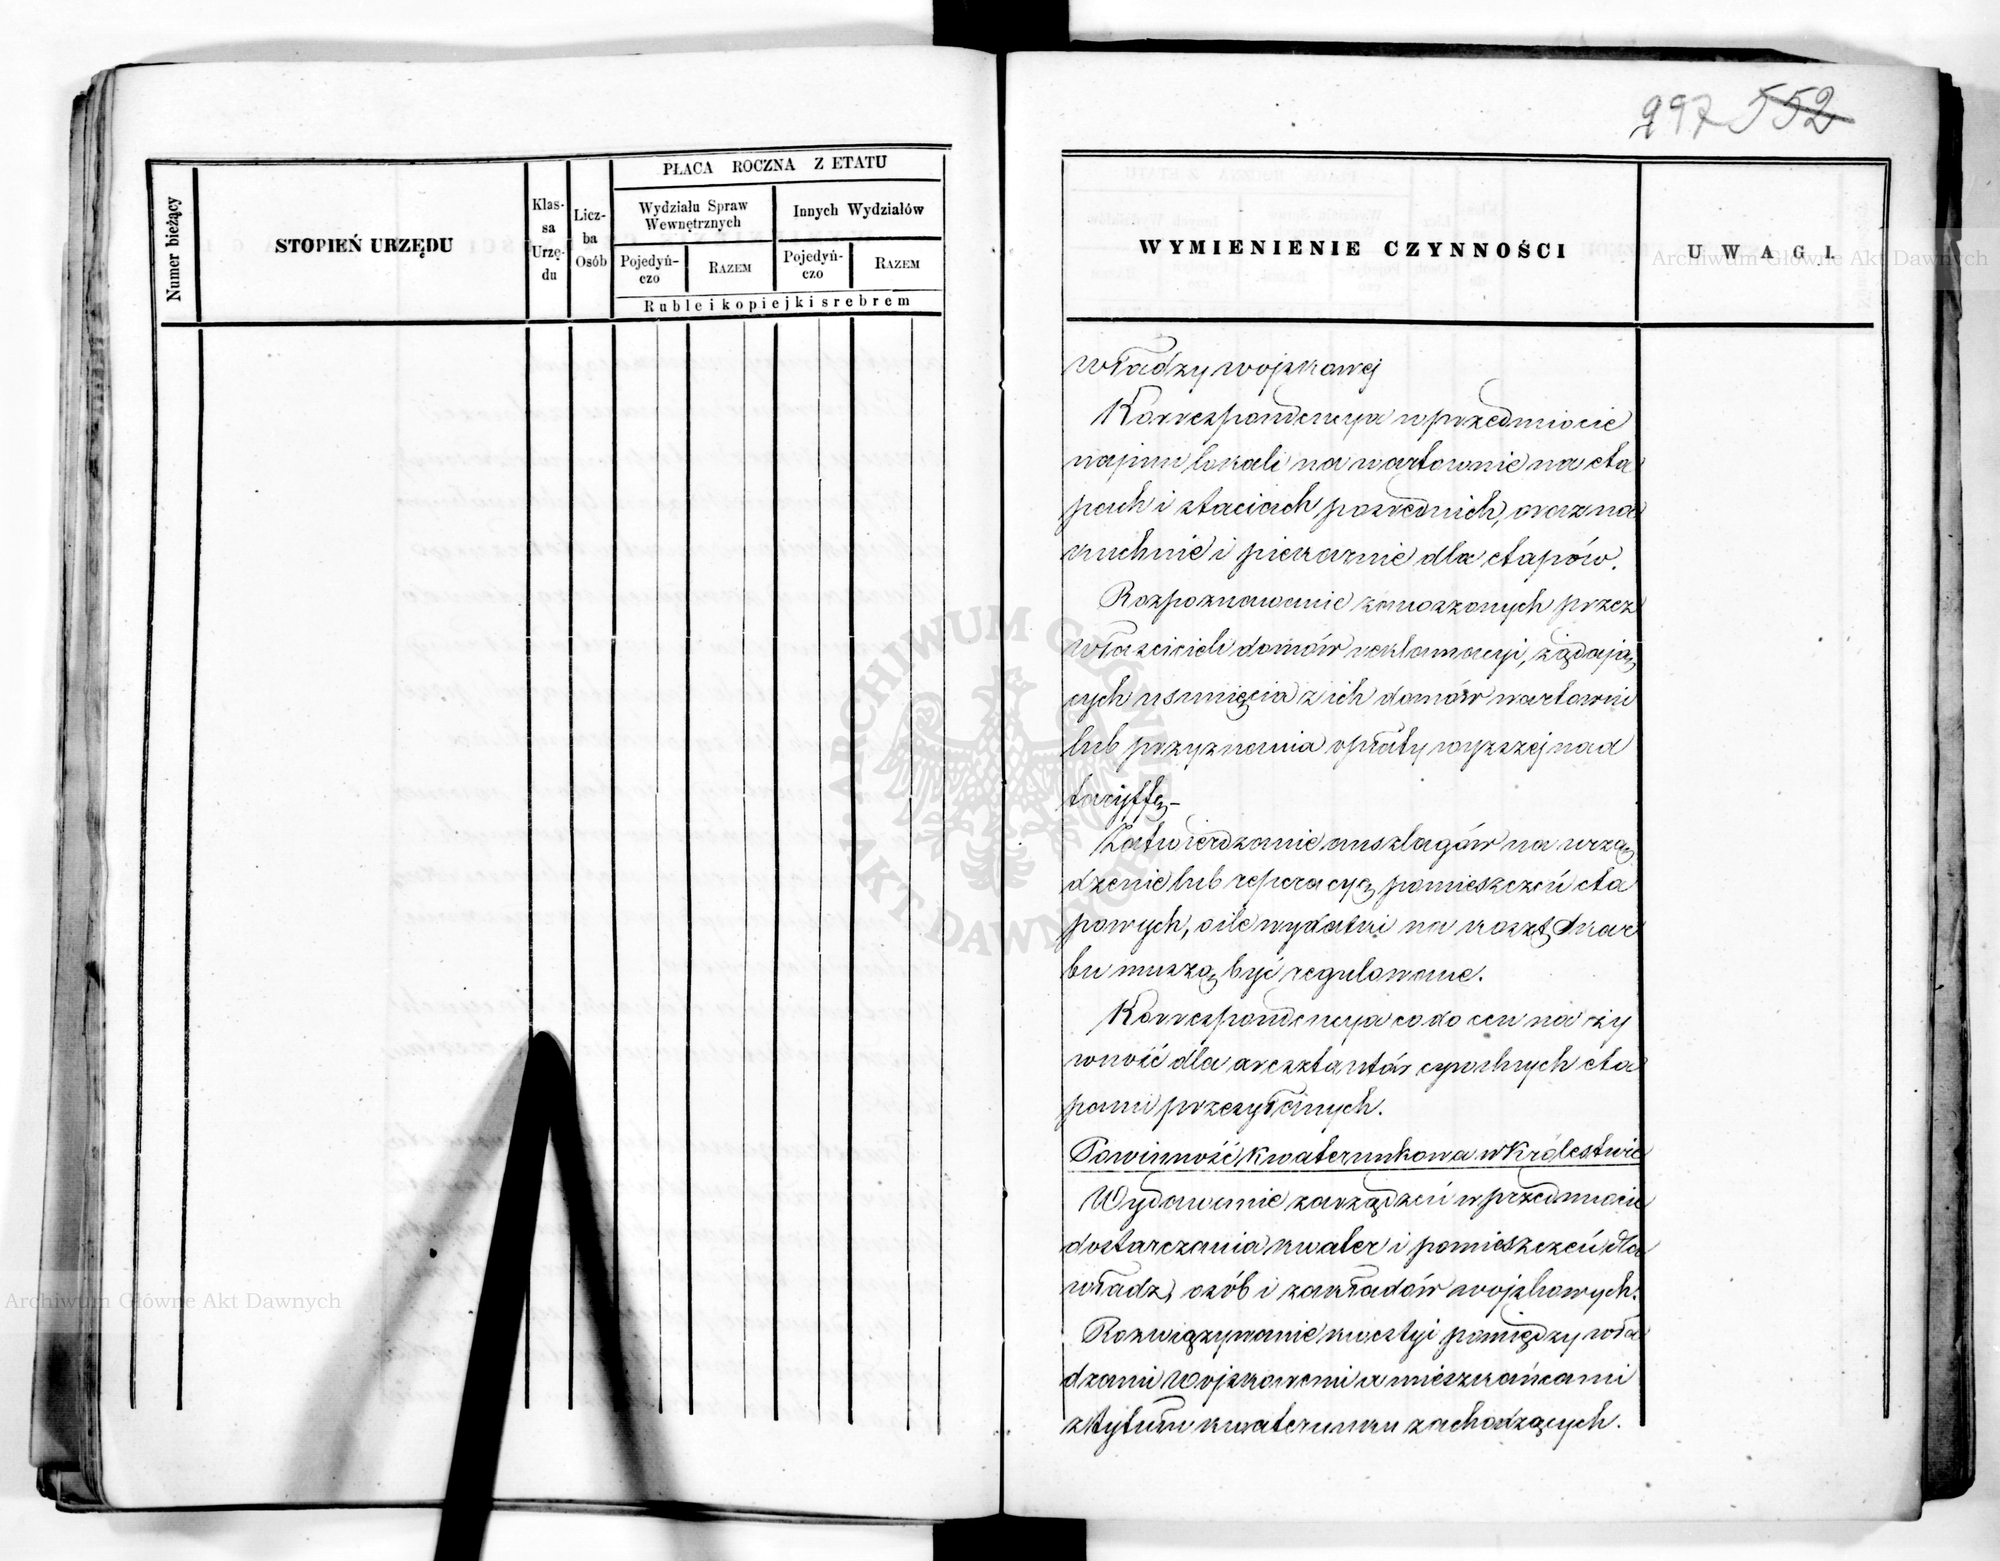 Numer bieżący
STOPIEŃ URZĘDU
Klas-
sa
Urzę-
du
Licz-
ba
Osób
PŁACA ROCZNA Z ETATU
Wydziału Spraw
Wewnętrznych
Innych Wydziałów
Pojedyń-
czo
RAZEM
Pojedyń-
czo
RAZEM
Ruble i kopiejki srebrem
297 552
WYMIENIENIE CZYNNOŚCI
UWAGI.
władzy wojskowej
Korrespondencya w przedmiocie
najmu lokali na wartownie na eta
pach i stacjach pośrednich, oraz na
kuchnie i piekarnie dla etapów.
Rozpoznawanie zanoszonych przez
właścicieli domów reklamacyi, żądają
cych usunięcia z ich domów wartowni
lub przyznania opłaty wyższej nad
taryffę_
Zatwierdzanie anszlagów na urzą
dzenie lub reperacyę pomieszczeń eta
powych, o ile wydatki na koszt Skar
bu muszą być regulowane.
Korrespondencya co do cen na ży
wność dla aresztantów cywilnych eta
pami przesyłanych.
Powinność kwaterunkowa w Królestwie
Wydawanie zarządzeń w przedmiocie
dostarczania kwater i pomieszczeń dla
władz, osób i zakładów wojskowych.
Rozwiązywanie kwestyi pomiędzy wła
dzami wojskowemi a mieszkańcami
z tytułu kwaterunku zachodzących.
Archiwum Główne Akt Dawnych
Archiwum Główne Akt Dawnych
ARCHIWUM GŁÓWNE AKT DAWNYCH